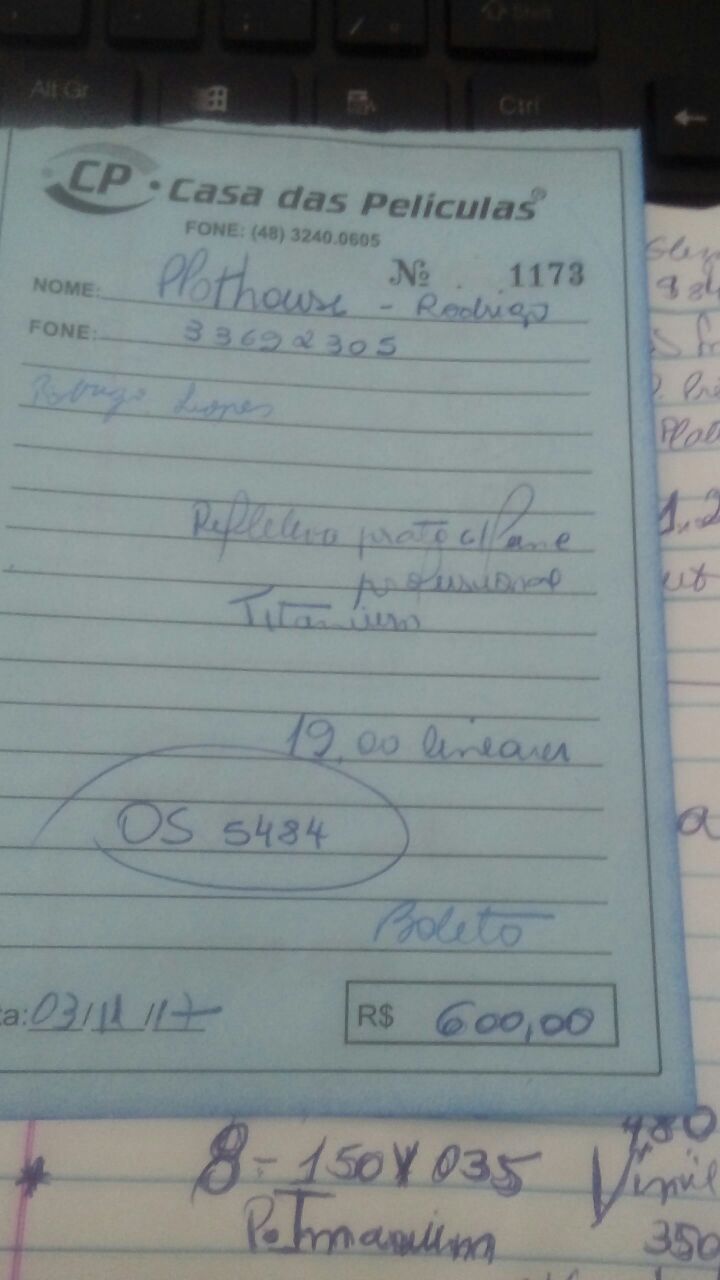 Alt Gr
Shift
Ctrl
CP • Casa das Películas®
FONE: (48) 3240.0605
Nº 1173
NOME: Plothouse - Rodrigo
FONE: 33692305
Lopes
Refletivo prata c/
profissional
Titanium
19,00 lineares
OS 5484
Boleto
ta: 03/11/17
R$ 600,00
480
8 - 150 X 035 Vinil
350